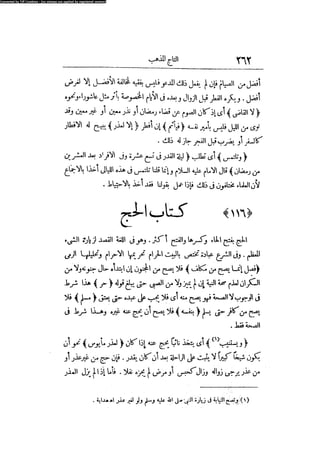 Converted by Tiff Combine - (no stamps are applied by registered version)
٣٦٢ التاج المذهب
أفضل من الصيام فإن لم يفعل ذلك المدعو فليس بفقيه لمخالفة الأفضل إلا لغرض
أفضل . ويكره الفطر قبل الزوال وبعده فى الأيام المخصوصة بأمر مثل عاشوراء ونحوه
( لا القاضى ) أى إذا كان الصوم عن قضاء رمضان أو نذر معين أو غير معين وقد
نوى من الليل فليس بأمير نفسه ( فيأثم ) إن أفطر ( إلا لعذر ) يبيح له الافطار
كالسفر أو يضرب قبل الفجر جاز له ذلك .
( وتلتمس ) أى تطلب ( ليلة القدر فى تسع عشرة وفى الافراد بعد العشرين
من رمضان ) قال الامام عليه السلام وإنما قلنا تلتمس فى هذه الليالى بالاجماع
لأن العلماء مختلفون فى ذلك فإذا عمل بقولنا فقد أخذ بالاحتياط .
﴿١١٦﴾ كتاب الحج
الحج بفتح الحاء وكسرها والفتح أكثر . وهو فى اللغة القصد لزيارة الشىء
المعظم . وفى الشرع عبادة تختص بالبيت الحرام تحريمها الاحرام وتحليلها الرمى
( فصل إنما يصح من مكلف ) فلا يصح من المجنون إن ابتدأه حال جنونه ولا من
السكران لعدم صحة النية إن لم يميز ولا من الصبى حتى يبلغ قوله ( حر ) هذا شرط
فى الوجوب لا الصحة فهو يصح منه أى فلا يجب على عبد حتى يعتق ( مسلم ) فلا
يصح من كافر حتى يسلم ( بنفسه ) أى فلا يصح أن يحج عنه غيره وهذا شرط فى
الصحة فقط .
( ويستنيب (١) ) أى يتخذ نائباً يحج عنه إذا كان ( لعذر مأيوس ) وهو أن
يكون شيخاً كبيراً لا يثبت على الراحلة بعد أن كان يقدر . فإن حج من غير عذر أو
من عذر يرجى زواله وزال كحبس أو مرض لم يجزه نقلاً . فأما إذا لم يزل العذر
(١) وتصح النيابة فى زيارة النبى صلى الله عليه وسلم ولو لغير عذر اهـ هداية .